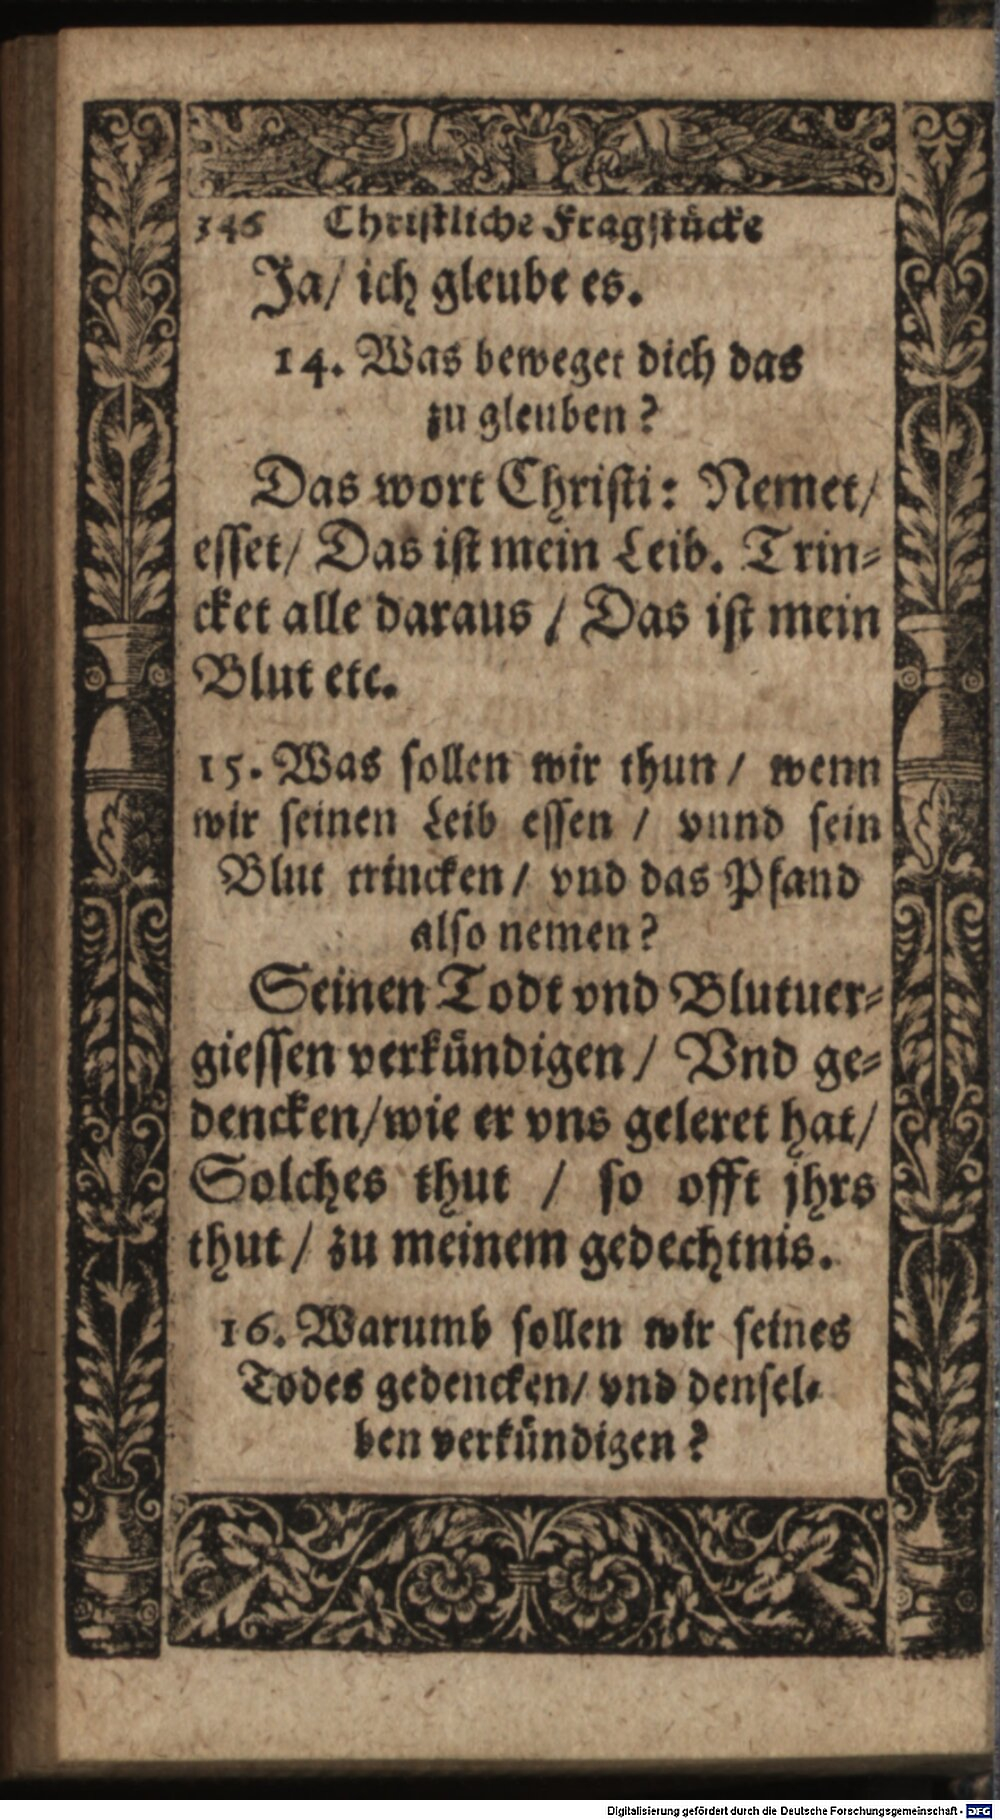 346 Christliche Fragstücke
Ja/ ich gleube es.
14. Was beweget dich das
zu gleuben?
Das wort Christi: Nemet/
esset/ Das ist mein Leib. Trin-
cket alle daraus / Das ist mein
Blut etc.
15. Was sollen wir thun / wenn
wir seinen Leib essen / vnnd sein
Blut trincken / vnd das Pfand
also nemen?
Seinen Todt vnd Blutuer-
giessen verkündigen / Vnd ge-
dencken/wie er vns geleret hat/
Solches thut / so offt jhrs
thut / zu meinem gedechtnis.
16. Warumb sollen wir seines
Todes gedencken/ vnd densel-
ben verkündigen?
Digitalisierung gefördert durch die Deutsche Forschungsgemeinschaft - DFG